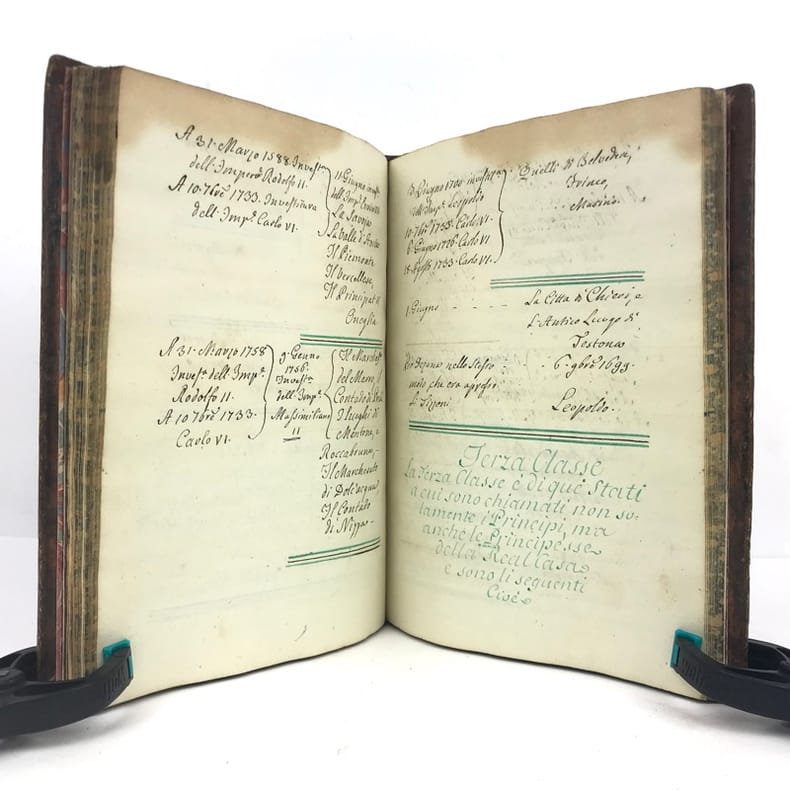 A 31. Marzo 1588. Invest.ª
dell' Imperor.ᵉ Rodolfo II.
A 10. 7bre 1733. Investitura
dell' Imp.ᵉ Carlo VI.
11 Giugno
dell' Imp.ᵉ
La Savoja
La Valle d'
Il Piemonte
Il Vercellese,
Il Principat
Oneglia
A 31. Marzo 1758
Invest.ª dell' Imp.ᵉ
Rodolfo II.
A 10 7bre 1733.
Carlo VI.
9. Genno
1756.
Invest.ª
dell' Imp.ᵉ
Massimiliano
II
Il March
del Maro, il
Contado di
I luoghi di
Mentone, e
Roccabruna,
Il Marchesato
di Dolc'acqua,
Il Contado
di Nizza
Giugno
dell' Imp.ᵉ Leopoldo
10. 7bre 1733. Carlo VI.
6. Giugno 1726 Carlo VI
1733. Carlo VI.
Quelli di Belvedere,
Trince,
Musino.
1. Giugno
La Città di Chieri, e
L'Antico Luogo di
Testona
nello Stesso
modo che era appresso
Li Tizzoni
6. 9bre 1699.
Leopoldo.
Terza Classe
La Terza Classe è di que' Stati
a cui sono chiamati non so-
lamente i Principi, ma
anche le Principesse
della Real Casa
e sono li seguenti
Cioè